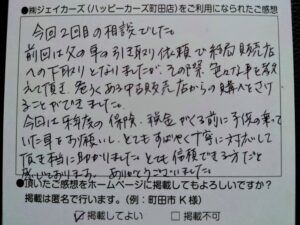 ㈱ジェイカーズ（ハッピーカーズ町田店）をご利用になられたご感想
今回2回目の相談でした。
前回は父の車の引き取り依頼で結局販売店
への下取りとなりましたが、その際、色々な事を教
えて頂き、悪くあるする販売店からの購入をさけ
ることができました。
今回は来年度の保険、税金がくる前に子供の乗って
いた車をお願いし、とてもすばやく丁寧に対応して
頂き本当に助かりました。とても信頼できる方だと
感じております。ありがとうございました。
●頂いたご感想をホームページに掲載してもよろしいですか？
掲載は匿名で行います。（例：町田市K様）
掲載してよい
掲載不可